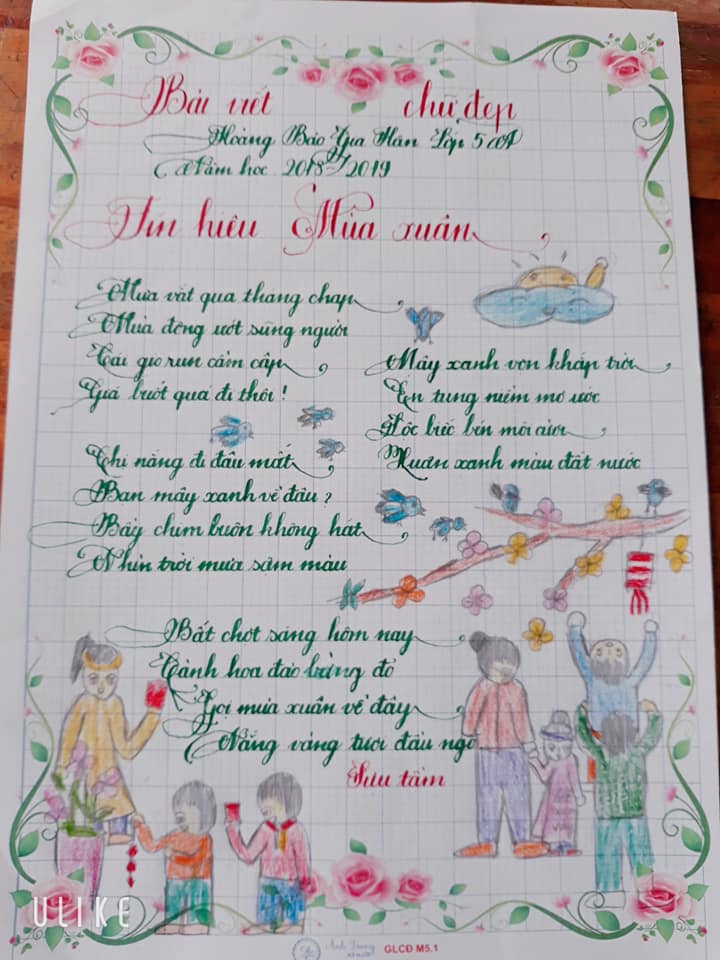 Bài viết chữ đẹp
Hoàng Bảo Gia Hân Lớp 5A
Năm học 2018-2019
Tín hiệu Mùa xuân
Mưa vắt qua tháng chạp
Mùa đông ướt sũng người
Cái gió run cầm cập
Giá buốt quá đi thôi!
Chị nắng đi đâu mất
Bạn mây xanh về đâu?
Bầy chim buồn không hát
Nhìn trời mưa sẫm màu
Bất chợt sáng hôm nay
Cành hoa đào bừng đỏ
Gọi mùa xuân về đây
Nắng vàng tươi đầu ngõ
Mây xanh von khắp trời
Én tung niềm mơ ước
Lộc biếc bên môi cười
Xuân xanh màu đất nước
Sưu tầm
ULIKE
GLCĐ M5.1